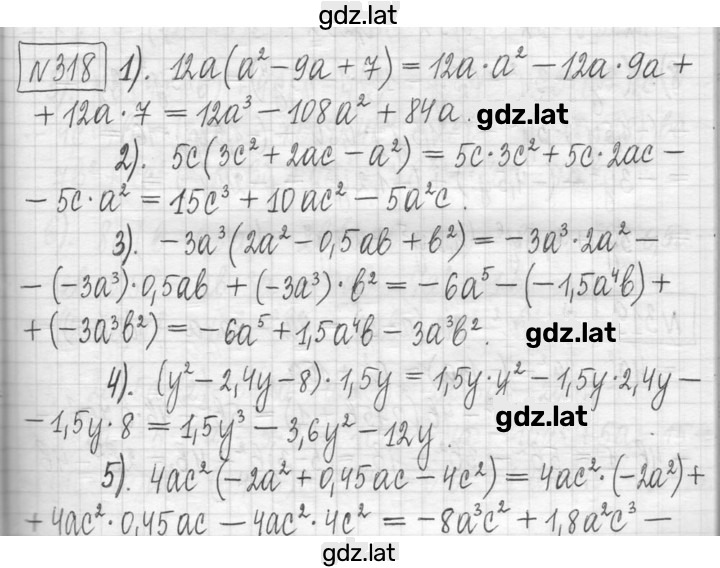 gdz.lat
№318 1). 12a(a² − 9a + 7) = 12a·a² − 12a·9a +
+ 12a·7 = 12a³ − 108a² + 84a. gdz.lat
2). 5c(3c² + 2ac − a²) = 5c·3c² + 5c·2ac −
− 5c·a² = 15c³ + 10ac² − 5a²c.
3). −3a³(2a² − 0,5ab + b²) = −3a³·2a² −
−(−3a³)·0,5ab + (−3a³)·b² = −6a⁵ − (−1,5a⁴b) +
+ (−3a³b²) = −6a⁵ + 1,5a⁴b − 3a³b². gdz.lat
4). (y² − 2,4y − 8)·1,5y = 1,5y·y² − 1,5y·2,4y −
− 1,5y·8 = 1,5y³ − 3,6y² − 12y. gdz.lat
5). 4ac²(−2a² + 0,45ac − 4c²) = 4ac²·(−2a²) +
+ 4ac²·0,45ac − 4ac²·4c² = −8a³c² + 1,8a²c³ −
gdz.lat